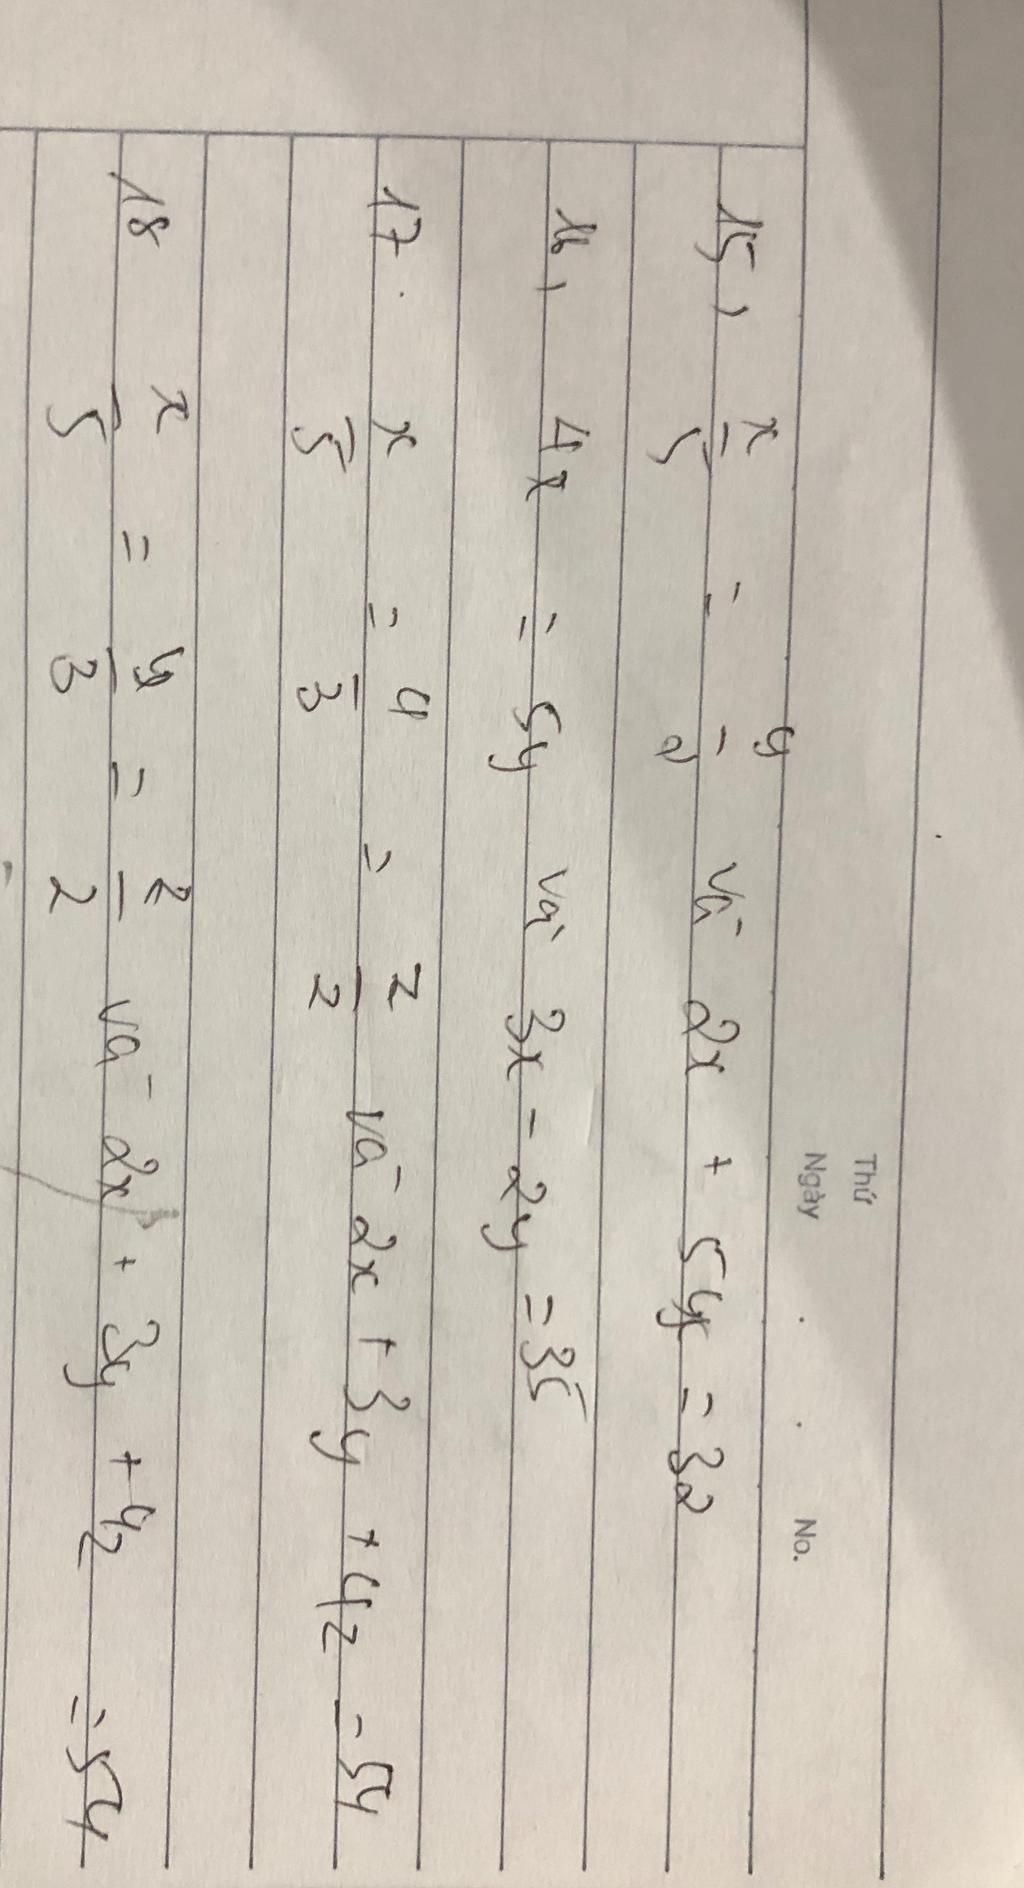 Thứ
Ngày . . No.
15, x/5 = y/2 và 2x + 5y = 32
16, 4x = 5y và 3x - 2y = 35
17. x/5 = y/3 = z/2 và 2x + 3y + 4z = 54
18 x/5 = y/3 = z/2 và 2x + 3y + 4z = 54